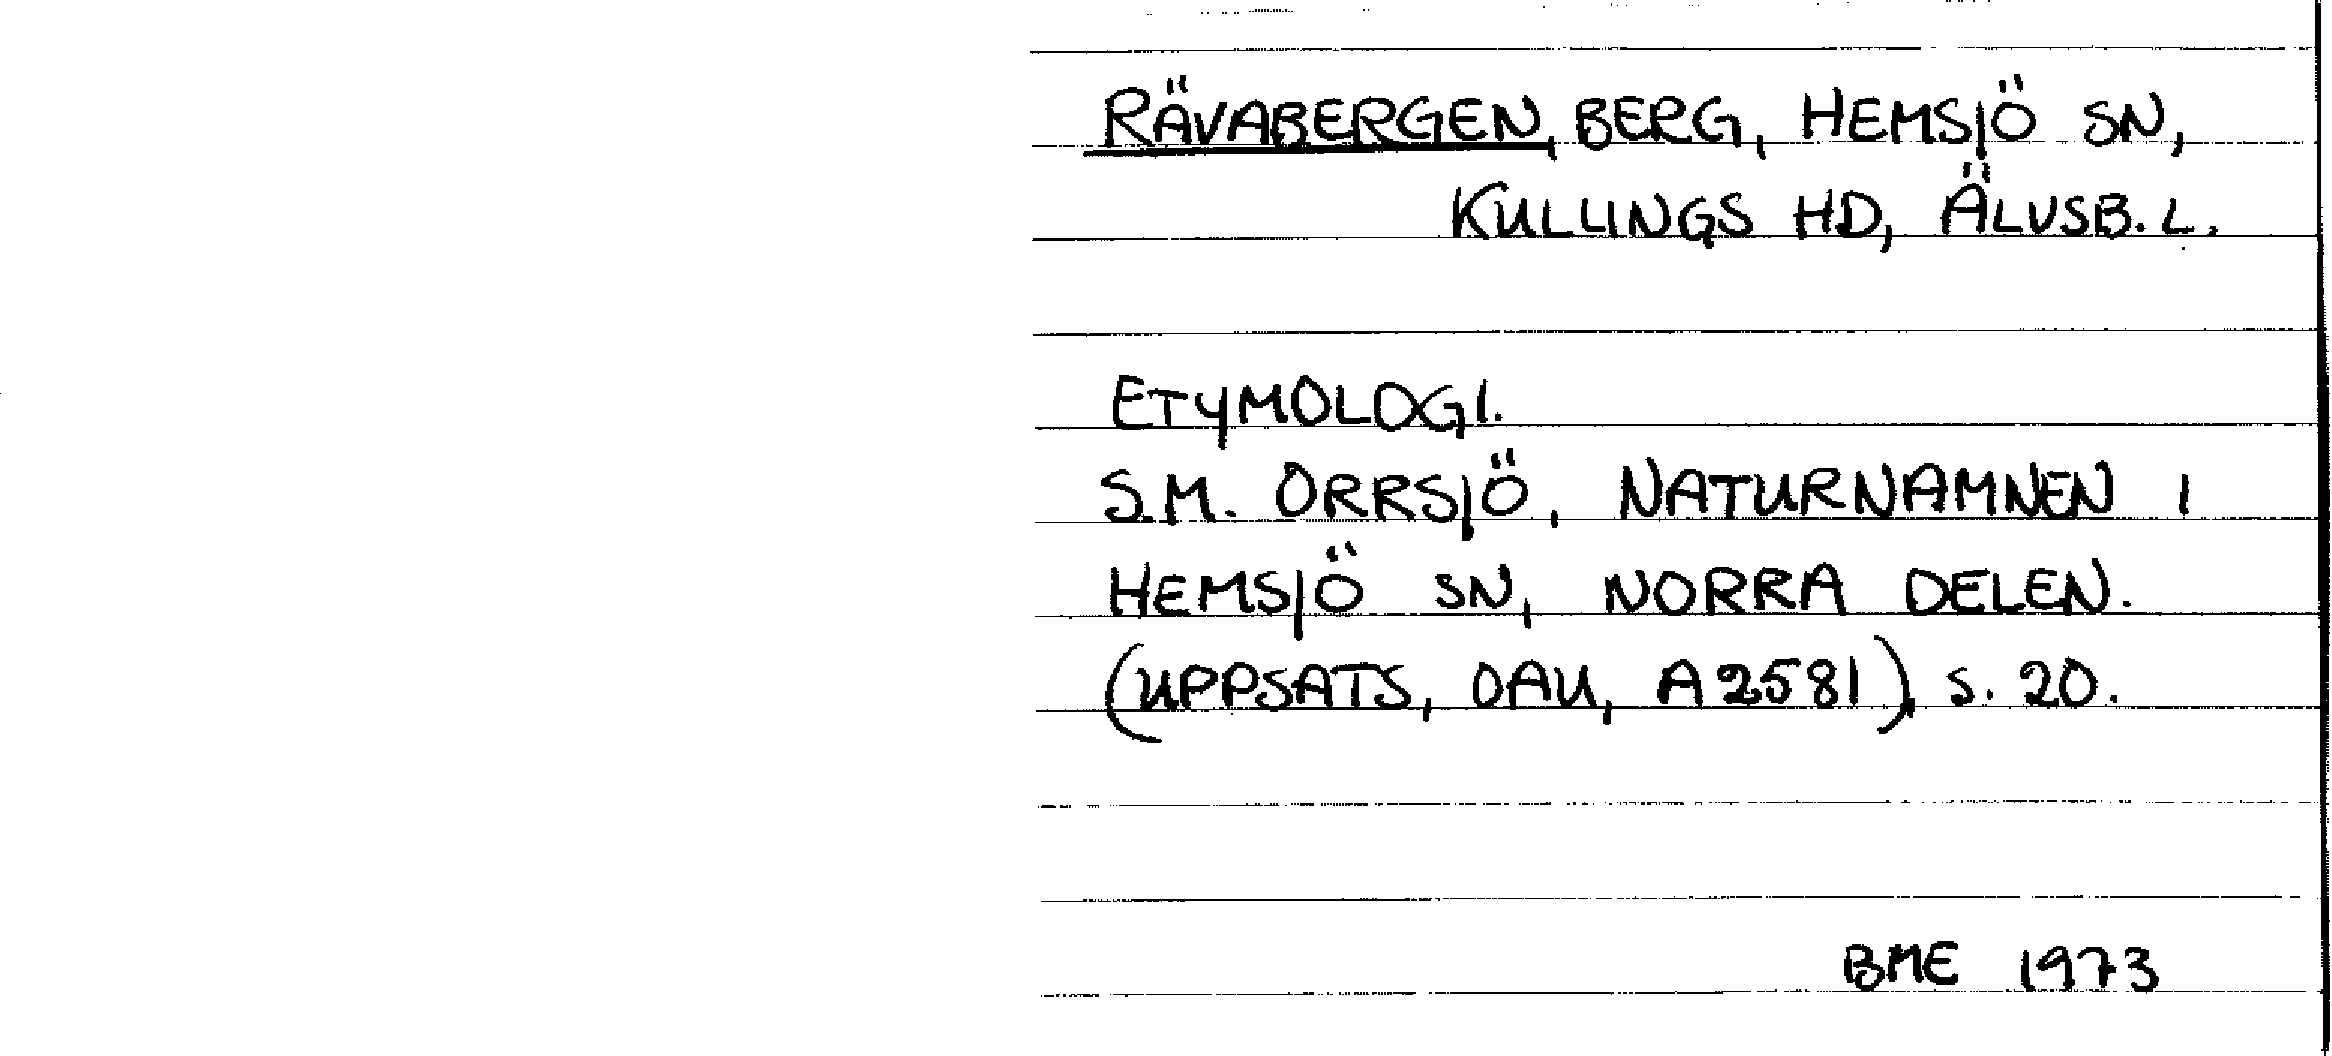 RÄVABERGEN, BERG, HEMSJÖ SN,
KULLINGS HD, ÄLVSB. L.
ETYMOLOGI.
S.M. ORRSJÖ, NATURNAMNEN I
HEMSJÖ SN, NORRA DELEN.
(UPPSATS, OAU, A2581), s. 20.
BME 1973